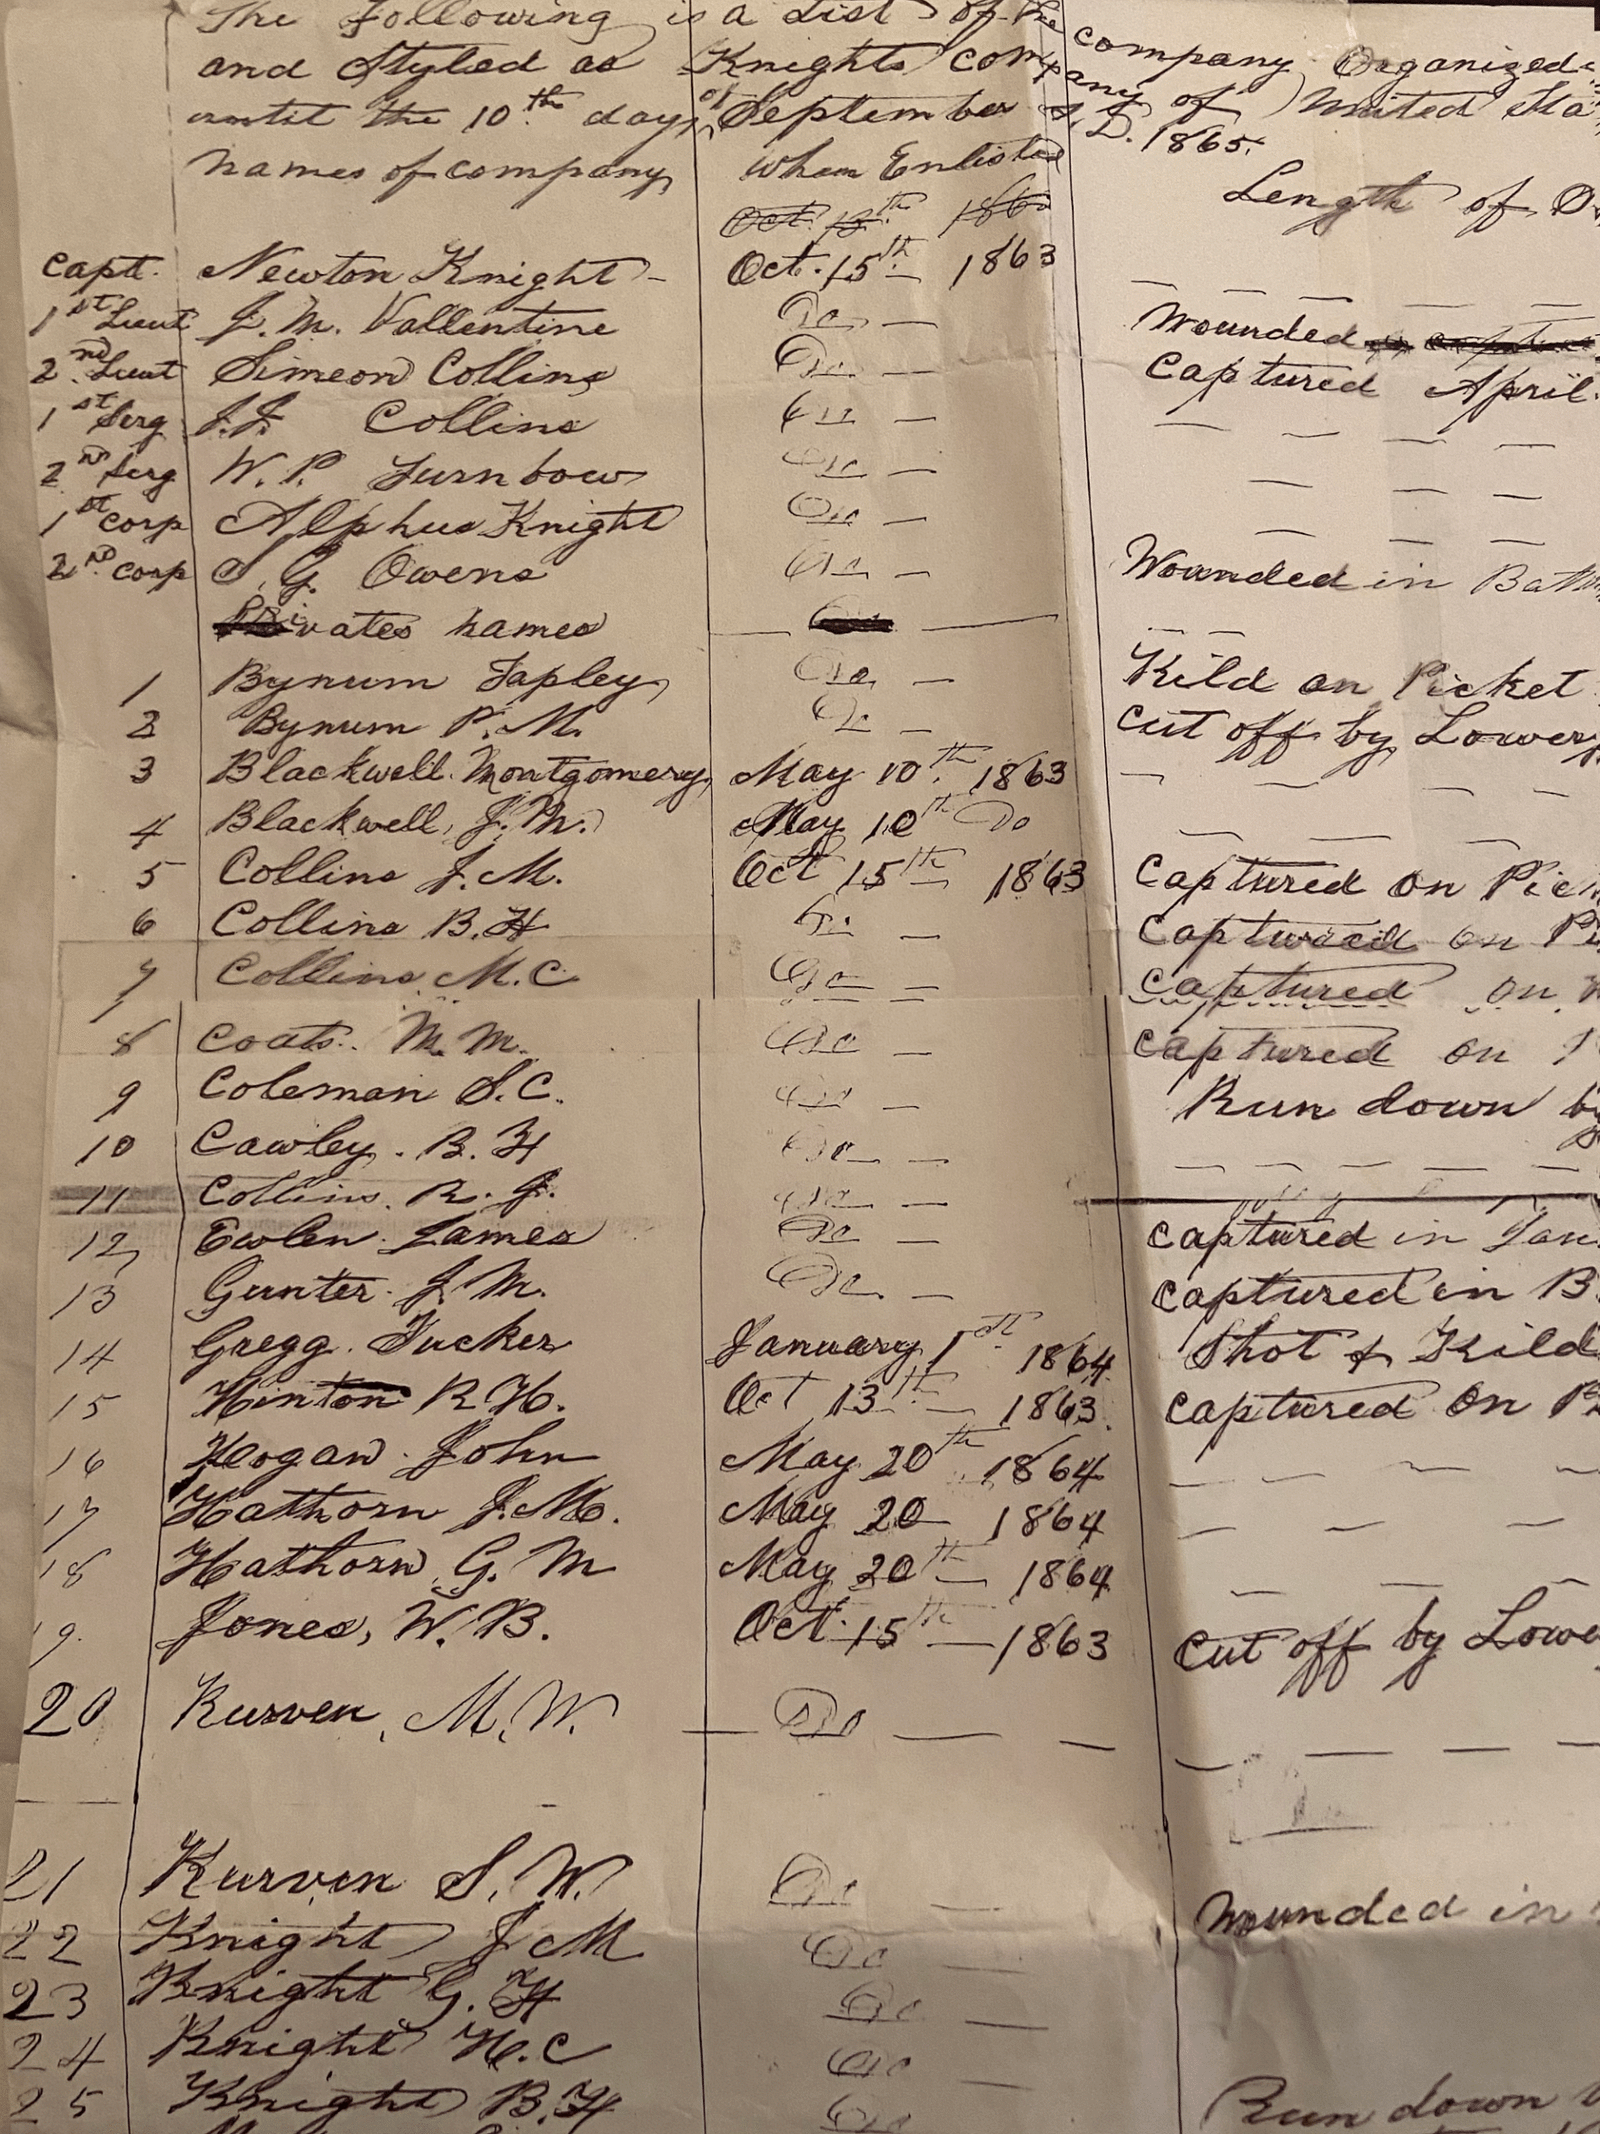 The Following is a List of the company Organized
and Styled as Knights company of United Sta
until the 10th day of September A.D. 1865.
names of company when Enlisted Length of
Oct. 13th 186
Capt. Newton Knight Oct. 15th 1863
1st Lieut J. M. Vallentine Do — Wounded
2nd Lieut Simeon Collins Do — Captured April
1st Serg J.J. Collins Do —
2nd Serg W. P. Turnbow Do —
1st Corp Alpheus Knight Do —
2nd Corp S. G. Owens Do — Wounded in Batt
Privates names
1 Bynum Tapley Do — Kild on Picket
2 Bynum P. M. Do — Cut off by Lowery
3 Blackwell Montgomery May 10th 1863
4 Blackwell, J. M. May 10th Do
5 Collins J. M. Oct 15th 1863 Captured on Pic
6 Collins B. H Do — Captured on Pi
7 Collins M. C. Do — Captured on
8 Coats. M. M. Do — Captured on
9 Coleman S. C. Do — Run down by
10 Cawley. B. H Do —
11 Collins. R. J. Do —
12 Ewlen. James Do — Captured in Jan
13 Gunter. J. M. Do — Captured in B
14 Gregg. Tucker January 1st 1864 Shot & Kild
15 Hinton R. H. Oct 13th 1863 Captured on P
16 Hogan. John May 20th 1864
17 Hathorn J. M. May 20 1864
18 Hathorn, G. M May 20th 1864
19. Jones, W. B. Oct. 15th — 1863 Cut off by Lowe
20 Kurven, M. W. Do — —
21 Kurven S. W. Do — Wounded in
22 Knight J M Do —
23 Knight G. H Do —
24 Knight H. C Do —
25 Knight B. H Do Run down